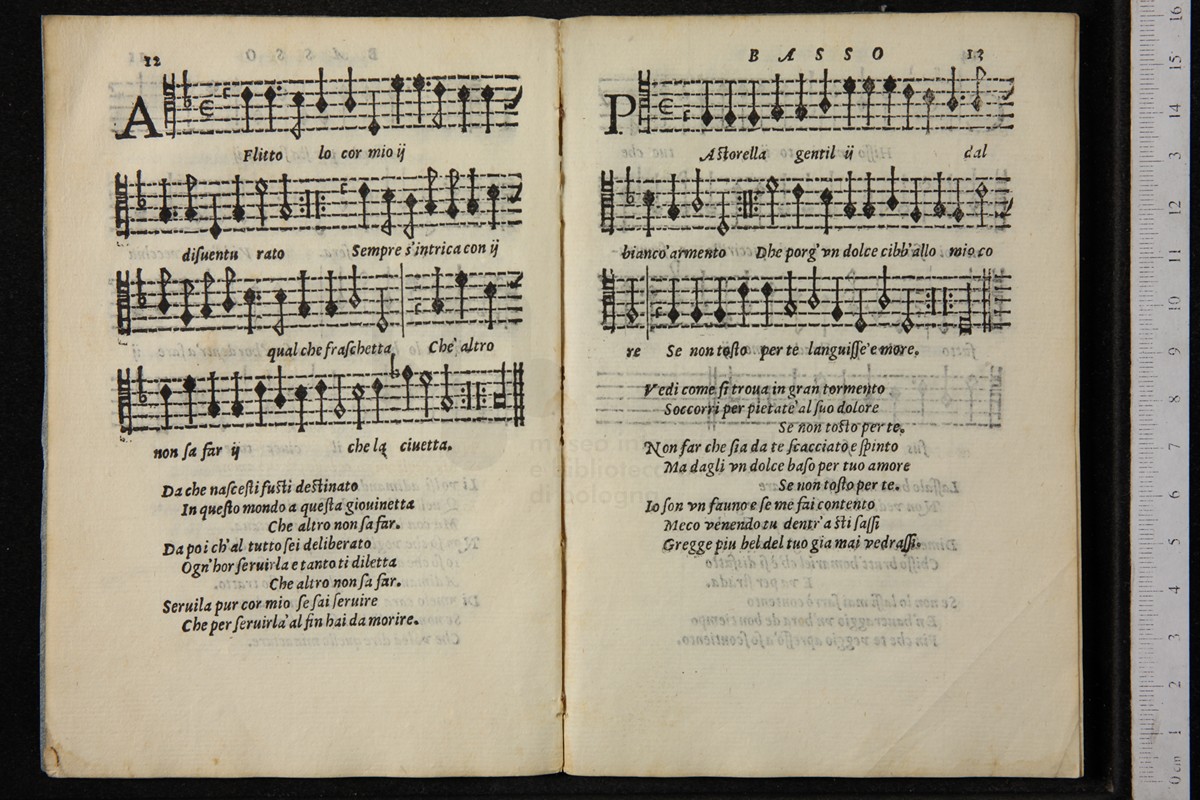 12
A
Flitto lo cor mio ij
disuentu rato Sempre s'intrica con ij
qual che fraschetta Che' altro
non sa far ij che la ciuetta.
Da che nascesti fusti destinato
In questo mondo a questa giouinetta
Che altro non sa far.
Da poi ch'al tutto sei deliberato
Ogn'hor seruirla e tanto ti diletta
Che altro non sa far.
Seruila pur cor mio se sai seruire
Che per seruirla' al fin hai da morire.
BASSO 13
P
Astorella gentil ij dal
bianco' armento Dhe porg' vn dolce cibb' allo mio co
re Se non tosto per te languisse' e more.
Vedi come si troua in gran tormento
Soccorri per pietate' al suo dolore
Se non tosto per te.
Non far che sia da te scacciato e spinto
Ma dagli vn dolce baso per tuo amore
Se non tosto per te.
Io son vn fauno e se me fai contento
Meco venendo tu dentr' a sti sassi
Gregge piu bel del tuo gia mai vedrassi.
museo int
e biblioteca
di bologna
0 cm 1 2 3 4 5 6 7 8 9 10 11 12 13 14 15 16